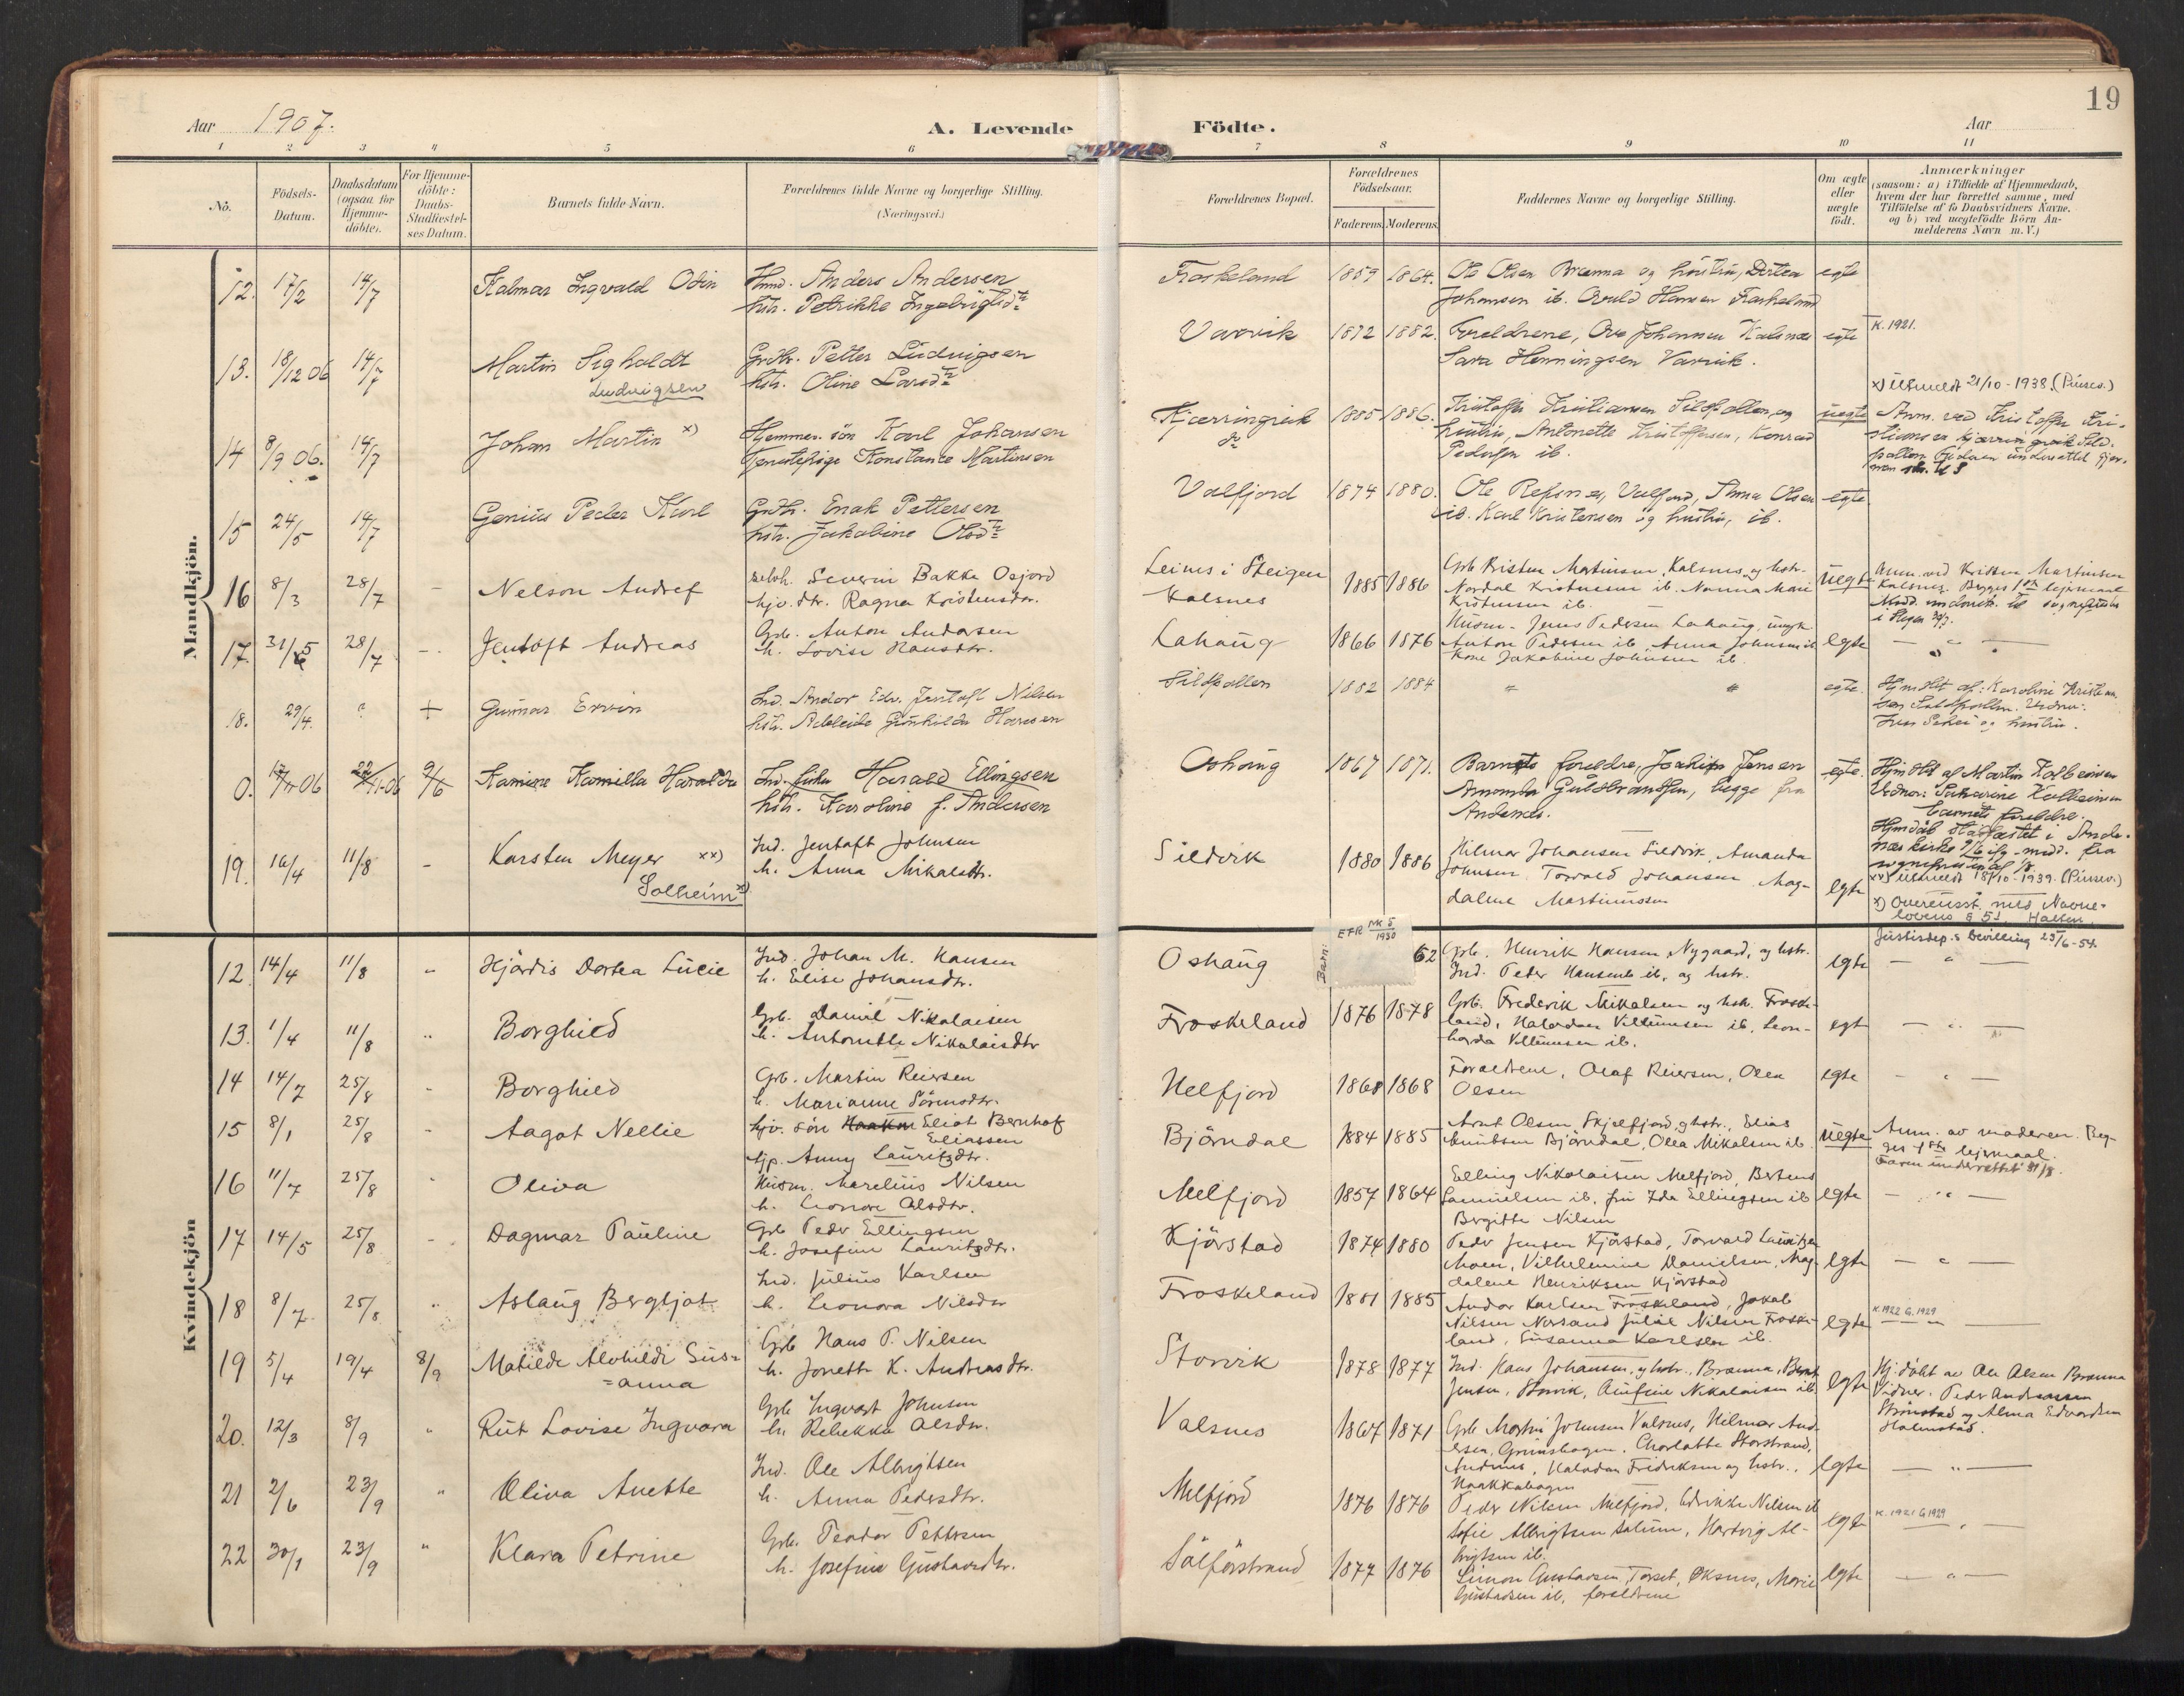 19
Aar 1907. A. Levende Födte. Aar
1 2 3 4 5 6 7 8 9 10 11
No.
Födsels-
Datum.
Daabsdatum
(ogsaa for
Hjemme-
döbte).
For Hjemme-
döbte:
Daabs-
Stadfæstel-
ses Datum.
Barnets fulde Navn.
Forældrenes fulde Navne og borgerlige Stilling.
(Næringsvei.)
Forældrenes Bopæl.
Forældrenes
Födselsaar.
Faderens. Moderens.
Faddernes Navne og borgerlige Stilling.
Om ægte
eller
uægte
födt.
Anmærkninger
(saasom: a) i Tilfælde af Hjemmedaab,
hvem der har forrettet samme, med
Tilföielse af to Daabsvidners Navne.
og b) ved uægtefödte Börn An-
melderens Navn m.V.)
Mandkjön.
12. 17/2 14/7 Halmar Ingvald Odin
Anders Andersen
hstr. Petrikke
Froskeland 1859 1864.
Ole Olsen Brænna og hustru, Dortea
Johansen ib. Hansen Froskeland
egte
13. 18/12 06 14/7 Martin Sigholdt
Ludvigsen
Grdbr. Petter Ludvigsen
hstr. Oline Larsdtr
Varvik 1872 1882.
Forældrene, Ove Johannesen Kalsnes
Sara Henningsen Varvik.
egte
K. 1921.
14 8/9 06. 14/7 Johan Martin x)
Hjemmev. sön Karl Johansen
Tjenestepige Konstance Martinsen
Kjærringvik 1885 1886.
Kristoffer Kristiansen Sildpollen og
hustru, Antonette Kristoffersen, Konrad
Pedersen ib.
uegte
x) Utmeldt 21/10-1938. (Pinsev.)
Anm. ved Kristoffer Kri-
stiansen
15 24/5 14/7 Genius Peder Karl
Grdbr. Enok Pettersen
hstr. Jakobine Olsdtr
Valfjord 1874 1880.
Ole Refsnes, Valfjord, Thina Olsen
ib. Karl Kristensen og hustru, ib.
egte
16 8/3 28/7 - Nelson Andref
selvh. Severin Bakke Osjord
hjv. dtr. Ragna Kristensdtr.
Leines i Steigen
Kalsnes
1885 1886
Grb Kristen Martinsen, Kalsnes, og hstr.
Nordal Kristensen ib. Nanna Marie
Kristensen ib.
Uegte
Anm. ved Kristen Martinsen
Kalsnes. Begges 1ste leiermaal
17. 31/5 28/7 -. Jentoft Andreas
Grb. Anton Andersen
h. Lovise Hansdtr.
Lahaug 1866 1876
Husm. Jens Pedersen Lahaug, ungk.
Anton Pedersen ib. Anna Johnsen ib
Kone Jakobine Johnsen ib.
Egte — " —
18. 29/4. ? + Gunnar Ervin
Ind. Andor Edv. Jentoft Nilsen
hstr. Adeleide Gunhilda Hansen
Sildpollen 1882 1884 " " egte.
Hjmdbt af: Karoline Kristian-
sen Sildpollen.
0. 17/11 06 22/11-06 9/6 Kamine Kamilla Haralda
Ind. fisker Harald Ellingsen
hstr. Karoline f. Andersen
Oshaug 1867 1871.
Barnets foreldre, Joakim Jensen
Amanda Guldbrandsen, begge fra
Andenes.
egte.
Hjmdbt af Martin Kolbeinsen
Vidner: Katarine Kolbeinsen
barnets foreldre.
Hjmdåb stadfæstet i Ande-
nes kirke 9/6 ifg. medd. fra
19. 16/4 11/8 - Karsten Meyer xx)
Solheim x)
Ind. Jentoft Johnsen
h. Anna Mikalsdtr.
Sildvik 1880 1886
Hilmar Johansen Sildvik, Amanda
Johnsen, Torvald Johansen, Mag-
dalene Martinussen
Egte
xx) Utmeldt 18/10-1939. (Pinsev.)
x) Overensst. med Navne-
lovens § 51. Halsen
Justisdep.s bevilling 25/6-54.
Kvindekjön
12 14/4 11/8 " Hjördis Dortea Lucie
Ind. Johan M. Hansen
h. Elise Johansdtr.
Oshaug
Barn: EFR NK 5
1930
62
Grb. Henrik Hansen, Nygaard, og hstr.
Ind. Peder Hansen ib. og hstr.
Egte — " —
13. 1/4 11/8 " Borghild
Grb. Daniel Nikolaisen
h. Antonette Nikolaisdtr
Froskeland 1876 1878
Grb. Frederik Mikalsen og hstr. Froske-
land, Halvdan Villumsen ib, Leon-
harda Villumsen ib.
egt — " —
14 14/7 25/8 - Borghild
Grb. Martin Reiersen
h. Marianne Sörensdtr.
Melfjord 1868 1868
Foraeldrene, Olaf Reiersen, Olea
Olsen
Egte — " —
15 8/1 25/8 - Aagot Nellie
hjv. sön Haakon Eliot Bernhof
Eliassen
tjp. Anny Lauritzdtr.
Björndal 1884 1885
Arnt Olsen, Skjelfjord, og hstr., Elias
Amundsen Björndal, Olea Mikalsen ib.
Uegte
Anm. av moderen. Beg-
ges 1ste leiermaal.
Faren underrettet 31/8.
16 11/7 25/8 " Oliva
Husm. Marelius Nilsen
h. Leonore Olsdtr.
Melfjord 1857 1864
Elling Nikolaisen Melfjord, Bertens
Samuelsen ib, fru Ida Ellingsen ib
Bergitte Nilsen
Egte — " —
17 14/5 25/8 - Dagmar Pauline
Grb Peder Ellingsen
h. Josefine Lauritzdtr.
Kjörstad 1874 1880
Peder Jensen Kjörstad, Torvald Lauritzen
Moen, Vilhelmine Danielsen, Mag-
dalene Henriksen Kjörstad
Egte — " —
18 8/7 25/8 " Aslaug Bergljot
Ind. Julius Karlsen
h. Leonora Nilsdtr
Froskeland 1881 1885
Andor Karlsen Froskeland, Jakob
Nilsen Nersand Julie Nilsen Froske-
land, Susanna Karlsen ib.
Egte
K. 1922 G. 1929
19 5/4 19/4 8/9 Matilde Alvhilde Sus-
=anna
Grb Hans P. Nilsen
h. Jonette K. Andreasdtr.
Storvik 1878 1877
Ind. Hans Johansen, og hstr., Brænna, Bernt
Jensen, Storvik, Nikolaisen ib.
Egte
Hj. döbt av Ole Olsen Brænna
Vidner. Peder Andreassen
Strinstad og Alma Edvardsen
Holmstad.
20. 12/3 8/9 " Rut Lovise Ingvara
Grb Ingvart Johnsen
h. Rebekka Olsdtr.
Valsnes 1867 1871
Grb Martin Johnsen Valsnes, Hilmar And-
ersen, Grunshagen. Charlotte Storstrand,
Andenes, Halvdan Fredriksen og hstr.,
Haakkahagen
Egte — " —
21 2/6 23/9 " Oliva Anette
Ind. Ole Albrigtsen
h. Anna Pedersdtr.
Melfjord 1876 1876
Peder Nilsen Melfjord, Nilsen ib
Sofie Albrigtsen Salum, Hartvig Al-
brigtsen ib.
Egte
K. 1921 G 1929
22 30/1 23/9 " Klara Petrine
Grb. Peador Pettersen
h. Josefine Gustavsdtr.
1877 1876
Simon Gustavsen, Torset, Øksnes, Marie
Gustavsen ib, foreldrene
Egte — " —